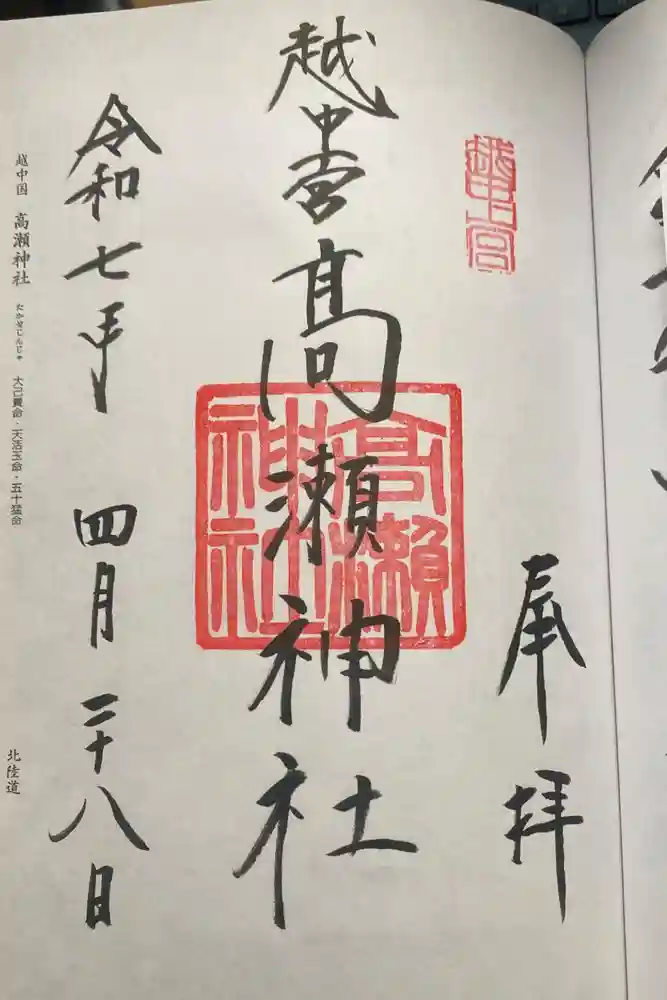 奉拝
越中一宮
越中一宮 髙瀬神社
高瀬神社
令和七年 四月 二十八日
越中国 高瀬神社 たかせじんじゃ 大己貴命・天活玉命・五十猛命
北陸道